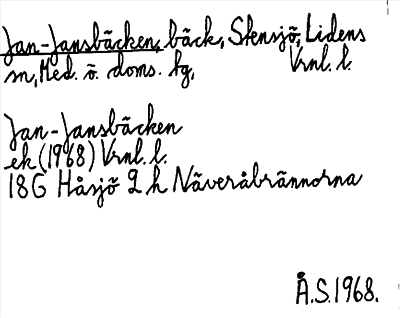 Jan-Jansbäcken, bäck, Stensjö, Lidens
sn, Med. ö. doms. hg, Vrnl. l.
Jan-Jansbäcken
ek (1968) Vrnl. l.
18G Håsjö 2 h Näveråbrännorna
Å.S. 1968.